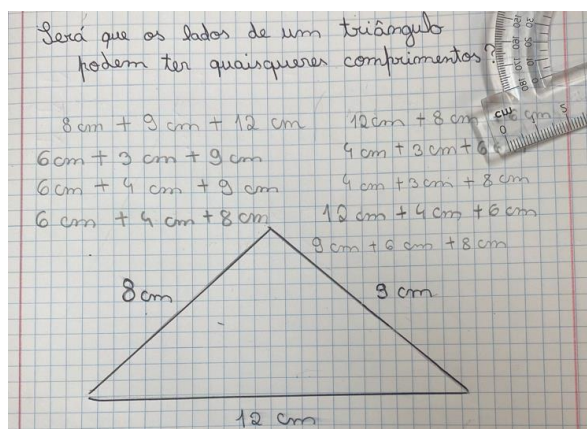 Será que os lados de um triângulo
podem ter quaisqueres comprimentos?
8cm + 9cm + 12 cm
6cm + 3 cm + 9cm
6cm + 4 cm + 9cm
6 cm + 4 cm + 8cm
12cm + 8cm + 6cm
4cm + 3cm + 6
4cm + 3cm + 8cm
12 cm + 4cm + 6cm
9cm + 6cm + 8cm
8cm
9 cm
12 cm
cm
0
5